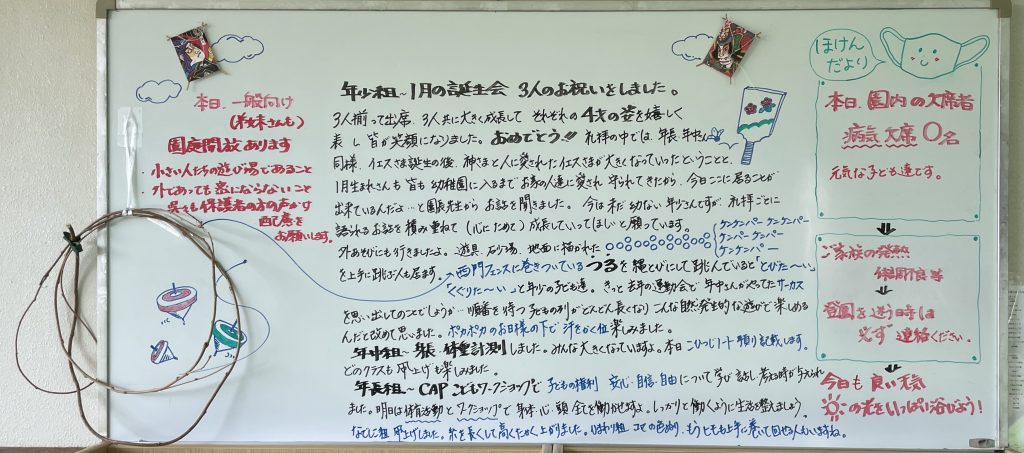 本日 一般向け
(弟妹さんも)
園庭開放あります
・小さい人たちの遊び場であること
・外であっても密にならないこと
・必ず保護者の方の声がけ
配慮を
お願いします。
年少組~1月の誕生会 3人のお祝いをしました。
3人揃って出席、3人共に大きく成長して それぞれの4才の姿を嬉しく
表し 皆が笑顔になりました。おめでとう!! 礼拝の中では、年長 年中さん
同様、イエスさま誕生の後、神さまと人に愛されたイエスさまが大きくなっていったということと、
1月生まれさんも 皆も 幼稚園に入るまで お家の人達に愛され 守られてきたから、今日ここに居ることが
出来ているんだよ…と園長先生から お話を聞きました。 今は未だ幼い、年少さんですが、礼拝ごとに
語られるお話を積み重ねて (心にためて)成長していってほしいと願っています。
外あそびにも行きましたよ。遊具、砂場、地面に描かれた
ケンケンパー ケンケンパー
パーケンケンパー
ケンケンパー
を上手に跳ぶ人も居ます。西門フェンスに巻きついている つる を縄とびにして 跳んでいると「とびた~い」
「くぐりた~い」と年少の子ども達。きっと去年の運動会で 年中さんがやってたサーカス
を思い出してのことでしょうが…順番を待つ子どもの列がどんどん長くなり こんな自然発生的な遊びで楽しめる
んだと改めて思いました。ポカポカのお日様の下で 汗をかく位 楽しみました。
年中組~身長・体重計測しました。みんな大きくなっていますよ。本日 こひつじノート預り記載します。
どのクラスも凧上げも楽しみました。
年長組~CAPこどもワークショップで 子どもの権利 安心・自信・自由について学び 話し 考える時が与えられ
ました。明日は体育活動とワークショップで 身体 心 頭 全てを働かせますよ。しっかりと働くように生活を整えましょう。
なでしこ組 凧上げしました。糸を長くして高くたかく上がりました。ひまわり組 コマの色ぬり、もうとても上手に巻いて回せる人もいますね。
ほけん
だより
本日 園内の欠席者
病気欠席0名
元気な子ども達です。
ご家族の発熱
体調不良等
登園を迷う時は
必ず 連絡ください。
今日も良い天気
の光をいっぱい浴びよう!